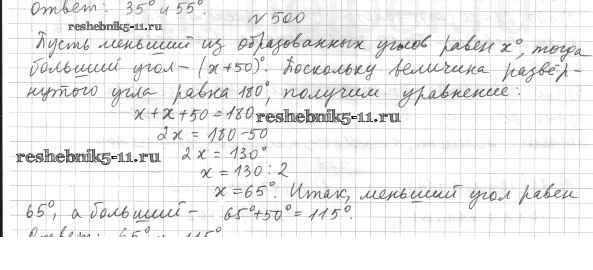 Ответ: 35° и 55°.
reshebnik5-11.ru
N 500
Пусть меньший из образованных углов равен x°, тогда
больший угол – (x+50)°. Поскольку величина развёр-
нутого угла равна 180°, получим уравнение:
x + x + 50 = 180 reshebnik5-11.ru
2x = 180-50
reshebnik5-11.ru 2x = 130°
x = 130 : 2
x = 65°. Итак, меньший угол равен
65°, а больший – 65°+50° = 115°.
Ответ: 65° и 115°.